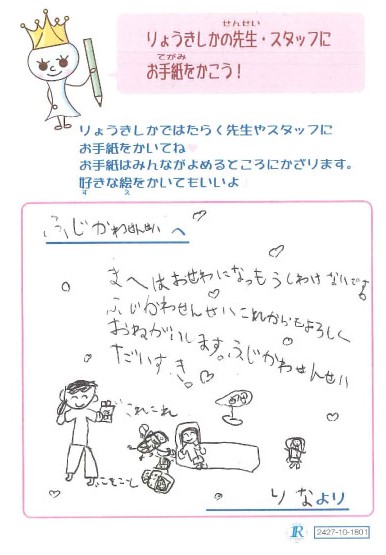 りょうきしかの先生・スタッフに
お手紙をかこう！
りょうきしかではたらく先生やスタッフに
お手紙をかいてね♥
お手紙はみんながよめるところにかざります。
好きな絵をかいてもいいよ
ふじかわせんせい へ
まへはおせわになっもうしわけないでよ
ふじかわせんせいこれからもよろしく
おねがいします。ふじかわせんせい
だいすき。
これこれ
りなより
R 2427-10-1801